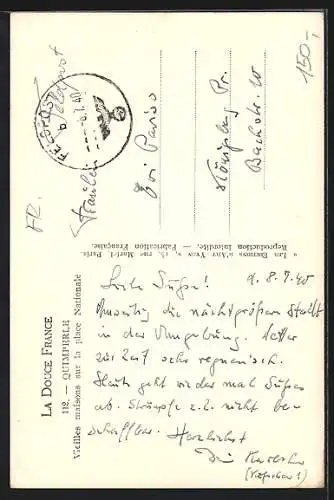 150,-
FELDPOST
Feldpost
b
-8.7.40
Fräulein
Evi
Königsberg Pr.
Bachstr.
FR.
« Les Editions d'Art Yvon », 15, rue Martel, Paris.
Reproduction Interdite. — Fabrication Française.
LA DOUCE FRANCE
112. — QUIMPERLÉ
Vieilles maisons sur la place Nationale
d. 8.7.40
Liebe Süße!
die nächstgrößere Stadt
in der Umgebung. Wetter
zur Zeit sehr regnerisch.
Heute geht wieder mal Süßes
ab. Strümpfe z.Z. nicht be-
schaffbar. Herzlichst
Dein